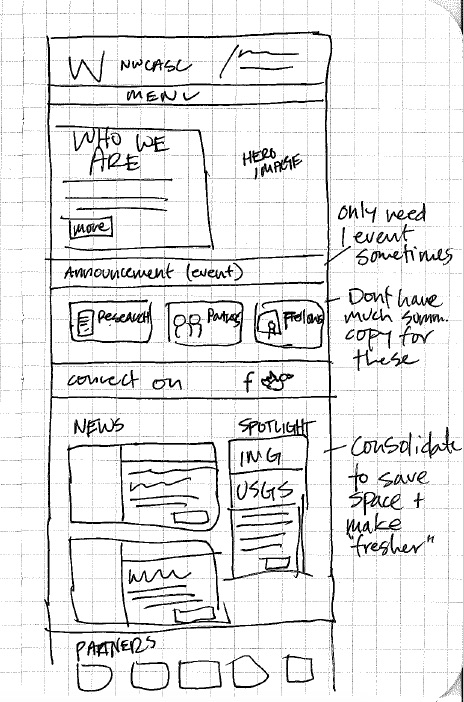 W NWCASC
MENU
WHO WE
ARE
more
HERO
IMAGE
only need
1 event
sometimes
Announcement (event)
Research
Fellows
Dont have
much summ.
copy for
these
connect on f
NEWS
SPOTLIGHT
IMG
USGS
Consolidate
to save
space +
make
"fresher"
PARTNERS